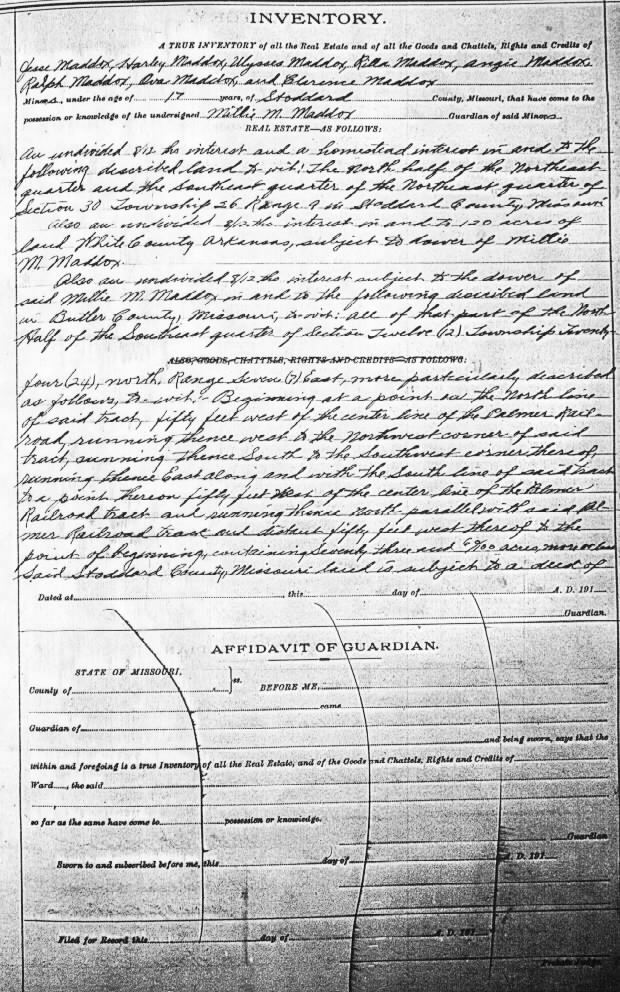 INVENTORY.
A TRUE INVENTORY of all the Real Estate and of all the Goods and Chattels, Rights and Credits of
Jesse Maddox, Harley Maddox, Ulysses Maddox, Retta Maddox, Angie Maddox
Ralph Maddox, Ova Maddox, and Clarence Maddox
Minors, under the age of 17 years, of Stoddard County, Missouri, that have come to the
possession or knowledge of the undersigned Millie M. Maddox Guardian of said Minors
REAL ESTATE—AS FOLLOWS:
An undivided 8/12 ths interest and a homestead interest in and to the
following described land to wit: The North half of the Northeast
quarter and the Southeast quarter of the Northeast quarter of
Section 30 Township 26 Range 9 in Stoddard County, Missouri
Also an undivided 8/12 ths interest in and to 120 acres of
land White County Arkansas, subject to dower of Millie
M. Maddox
Also an undivided 8/12 ths interest subject to the dower of
said Millie M. Maddox in and to the following discibed land
in Butler County, Missouri, to-wit: all of that part of the North
Half of the Southeast quarter of Section Twelve (12) Township Twenty-
ALSO, GOODS, CHATTELS, RIGHTS AND CREDITS—AS FOLLOWS:
four (24), north, Range Seven (7) East, more particularly described
as follows, to-wit:- Beginning at a point on the North line
of said tract, fifty feet west of the center line of the Palmer Rail-
road, running thence west to the Northwest corner of said
tract, running thence South to the Southwest corner thereof,
running thence East along and with the South line of said tract
to a point thereon fifty feet West of the center line of the
Railroad tract and running thence North parallel with said Pal-
mer Railroad tract and distant fifty feet west thereof to the
point of beginning, containing Seventy three and /100 acres, more or less
Said Stoddard County, Missouri land is subject to a deed of
Dated at , this day of A. D. 191
Guardian.
AFFIDAVIT OF GUARDIAN.
STATE OF MISSOURI, } ss.
County of BEFORE ME,
came
Guardian of
and being sworn, says that the
within and foregoing is a true Inventory of all the Real Estate, and of the Goods and Chattels, Rights and Credits of
Ward , the said
so far as the same have come to possession or knowledge.
Guardian
Sworn to and subscribed before me, this day of A. D. 191
Filed for Record this day of A. D. 191
Probate Judge.